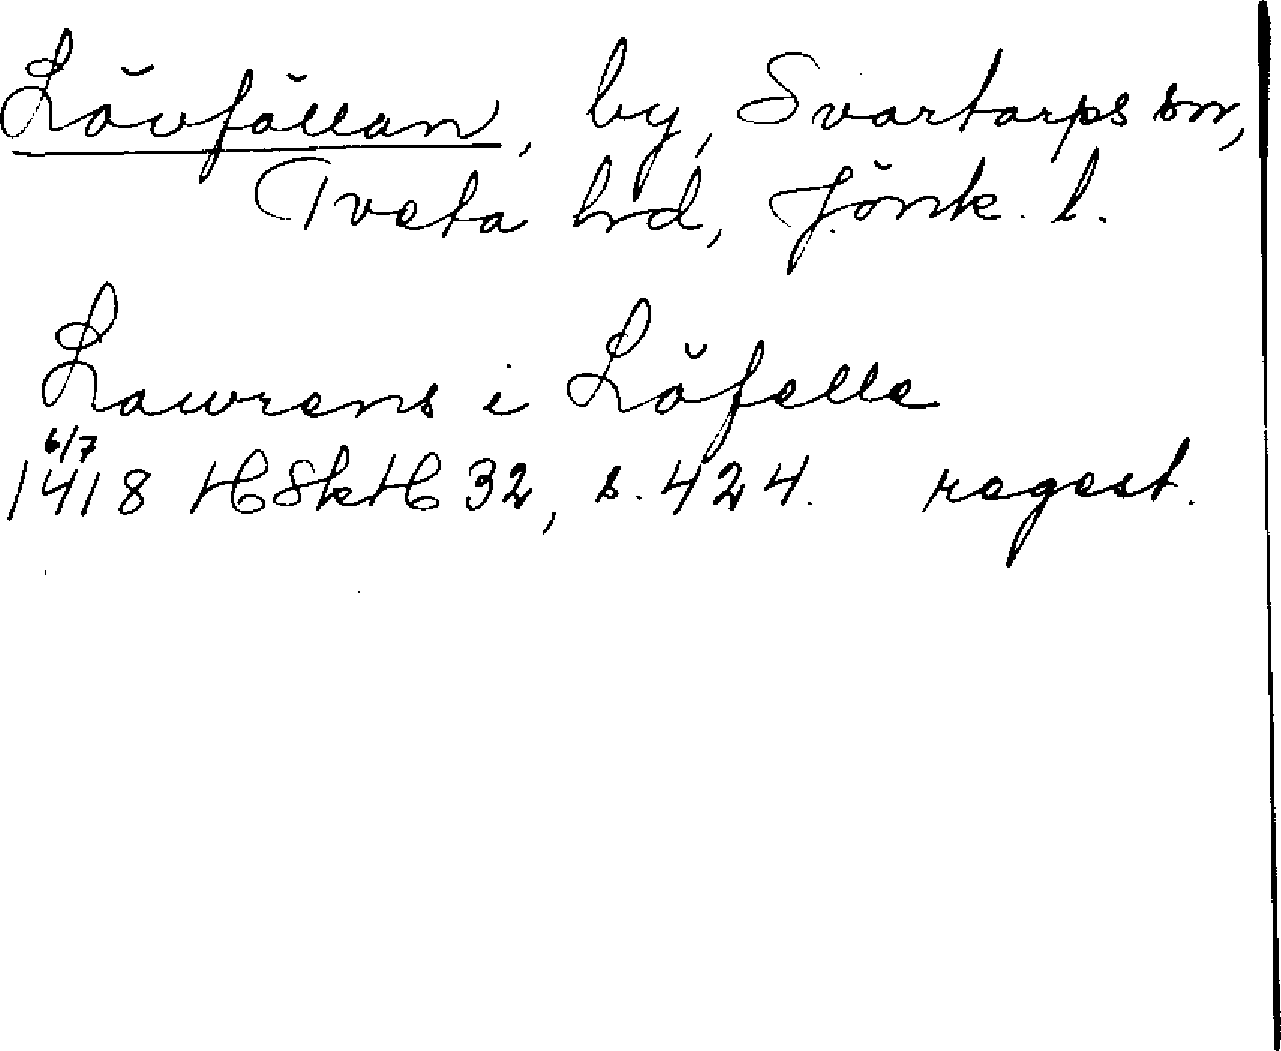 Lövfällan, by, Svartorps sn,
Tveta hrd, Jönk. l.
Lawrens i Löfelle
6/7
1418 HSkH 32, s. 424. regest.